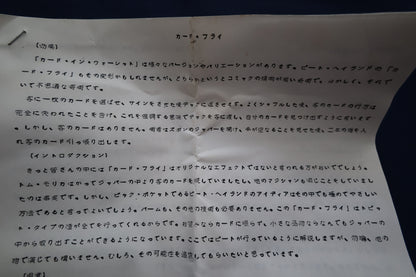 カード・フライ
（効果）
「カード・イン・ウォーレット」は様々なバージョンやバリエーションがあります。ピート・ヘイランドの「カ
ード・フライ」もその変形かもしれませんが、どちらかというとコミックの傾向が強い奇術です。おかしく、それで
いて不思議な奇術です。
客に一枚のカードを選ばせ、サインをさせた後デックに返させます。よくシャフルした後、客のカードの行方は
完全に失われたことを告げ、これを強調する意味でデックを客に渡し、自分のカードを見つけ出すように言います
。しかし、客のカードはありません。術者はズボンのジッパーを開け、手が空なことを見せた後、二本の指を入
れ客のカードを引っ張り出します。
（イントロダクション）
きっと皆さんの中には「カード・フライ」はオリジナルなエフェクトではないと言われる方がおいででしょう。
トム・モリカはかってジッパーの中より客のカードを現していましたし、他のマジシャンも同じことをしていまし
たのは事実です。しかし、ビック・ポケットでもるピート・ヘイランドのアイディアはその中でも極めてやさしい
方法であると言ってよいでしょう。パームも、その他の技術も必要ありません。この「カード・フライ」はトピッ
ト・タイプの道が全てを行ってくれるからです。お望みならカードに限らず、小さな品物ならなんでもジッパーの
中から取り出すことができるようになっています。ここではピートが行っているように解説しますが、勿論、他の
物で演じても構いません。むしろ、その可能性を追求してもらいたいと思っています。